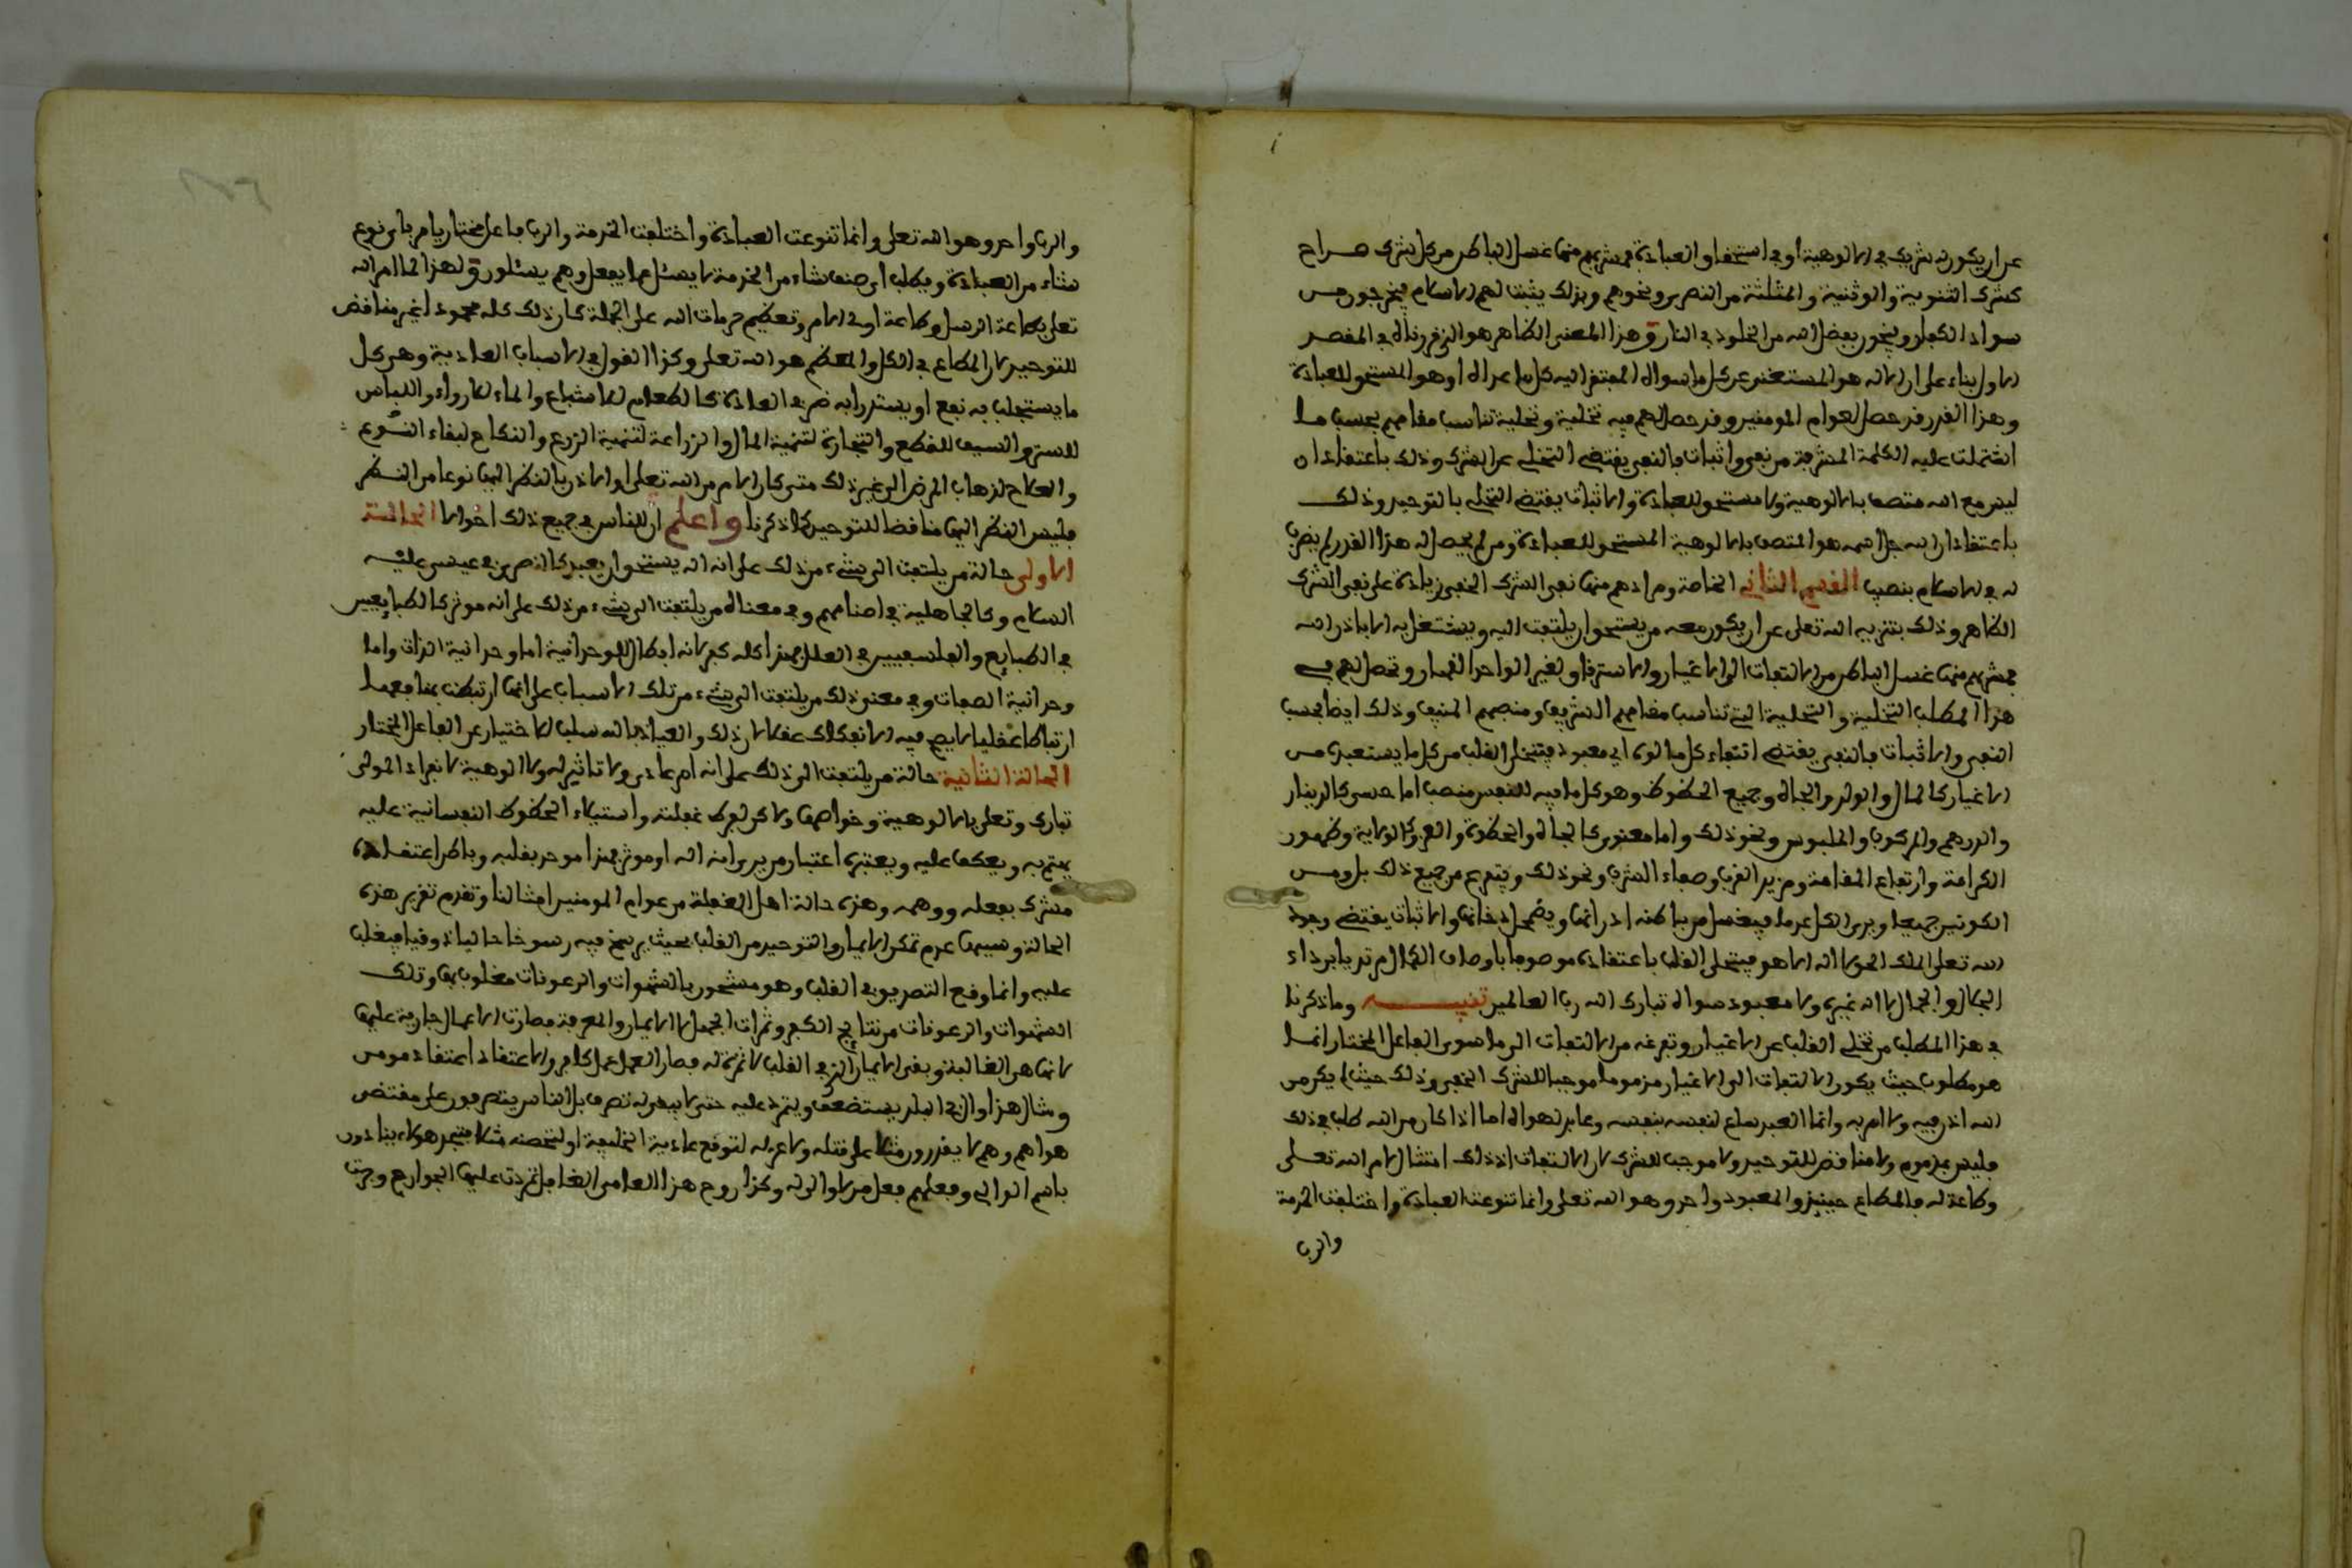 عن ان يكون له شريك في الالوهية او في استحقاق العبادة فمشربهم منها غسل الباطن من كل شرك صراح
كشرك الثنوية والوثنية والمثلثة من النصرى ونحوهم وبذلك يثبت لهم الاسلام فيخرجون من
سواد الكفار وينجون بفضل الله من الخلود في النار وهذا المعنى الظاهر هو الذي قررناه في المقصد
الاول بناء على ان الاله هو المستغني عن كل ما سواه المفتقر اليه كل ما عداه او هو المستحق للعبادة
وهذا القدر قد حصل لعوام المومنين وقد حصل لهم فيه تخلية وتحلية تناسب مقامهم بحسب ما
اشتملت عليه الكلمة المشرفة من نفي واثبات فالنفي يقتضي التخلي عن الشرك وذلك باعتقاد ان
ليس مع الله متصف بالالوهية ولا مستحق للعبادة والاثبات يقتضي التحلي بالتوحيد وذلك
باعتقاد ان الله جل اسمه هو المتصف بالالوهية المستحق للعبادة ومن لم يحصل له هذا القدر لم يضرب
له في الاسلام بنصيب القسم الثاني الخاصة ومرادهم منها نفي الشرك الخفي زيادة على نفي الشرك
الظاهر وذلك بتنزيه الله تعلى عن ان يكون معه من يستحق ان يلتفت اليه ويشتغل به الا باذن الله
فمشربهم منها غسل الباطن من الالتفات الى الاغيار والاسترقاق لغير الواحد القهار وتحصل لهم في
هذا المطلب التخلية والتحلية التي تناسب مقامهم الشريف ومنصبهم المنيف وذلك ايضا بحسب
النفي والاثبات فالنفي يقتضي انتفاء كل مالوه اي معبود فيتخلى القلب من كل ما يستعبده من
الاغيار كالمال والولد والجاه وجميع الحظوظ وهو كل ما فيه للنفس منصب اما حسي كالدينار
والدرهم والمركوب والملبوس ونحو ذلك واما معنوي كالجاه والحظوة والعز والولاية وظهور
الكرامة وارتفاع المقامة ومزيد القرب وصفاء الشرب ونحو ذلك ويتفرغ من جميع ذلك بل ومن
الكونين جميعا ويرى الكل عدما فيغسل من باطنه ادرانها ويضمحل دخانها والاثبات يقتضي وجود
الله تعلى الملك الحق لا اله الا هو فيتحلى القلب باعتقاده موصوفا باوصاف الكمال مترديا برداء
الجلال والجمال لا اله غيره ولا معبود سواه تبارك الله رب العالمين تنبيه وما ذكرنا
في هذا المطلب من تخلي القلب عن الاغيار وتفرغه من الالتفات الى ما سوى الفاعل المختار انما
هو مطلوب حيث يكون الالتفات الى الاغيار مذموما موجبا للشرك الخفي وذلك حيث لم يكن من
الله اذن فيه ولا امر به وانما العبد ساع لنفسه بنفسه وعابد لهواه اما اذا كان من الله طلب في ذلك
فليس بمذموم ولا مناقض للتوحيد ولا موجب للشرك لان الالتفات اذ ذاك امتثال لامر الله تعلى
وطاعة له فالمطاع حينئذ والمعبود واحد وهو الله تعلى وانما تنوعت العبادة واختلفت الخدمة
والرب
والرب واحد وهو الله تعلى وانما تنوعت العبادة واختلفت الخدمة والرب فاعل مختار يامر باي نوع
شاء من العبادة ويطلب اي صنف شاء من الخدمة لا يسئل عما يفعل وهم يسئلون ولهذا لما امر الله
تعلى بطاعة الرسل وطاعة اولي الامر وتعظيم حرمات الله على الجملة كان ذلك كله محمودا غير مناقض
للتوحيد لان المطاع في الكل والمعظم هو الله تعلى وكذا القول في الاسباب العادية وهي كل
ما يستجلب به نفع او يستدرا به ضر في العادة كالطعام للاشباع والماء للارواء واللباس
للستر والسيف للقطع والتجارة لتنمية المال والزراعة لتنمية الزرع والنكاح لبقاء النوع
والعلاج لذهاب المرض الى غير ذلك متى كان الامر من الله تعلى او الاذن بالنظر اليها نوعا من النظر
فليس النظر اليها مناقضا للتوحيد كما ذكرنا واعلم ان للناس في جميع ذلك احوالا الحالة
الاولى حالة من يلتفت الى شيء من ذلك على انه اله يستحق ان يعبد كالنصرى في عيسى عليه
السلام وكالجاهلية في اصنامهم وفي معناه من يلتفت الى شيء من ذلك على انه موثر كالطبايعيين
في الطبايع والفلسفيين في العلل فهذا كله كفر لانه ابطال للوحدانية اما وحدانية الذات واما
وحدانية الصفات وفي معنى ذلك من يلتفت الى شيء من تلك الاسباب على انها ارتبطت بمنافعها
ارتباطا عقليا لا يصح فيه الانفكاك عقلا لان ذلك والعياذ بالله سلب للاختيار عن الفاعل المختار
الحالة الثانية حالة من يلتفت الى ذلك على انه امر عادي ولا تاثير له ولا الوهية لانفراد المولى
تبارك وتعلى بالالوهية وخواصها ولاكن لفرط غفلته واستيلاء الحظوظ النفسانية عليه
يهتم به ويعكف عليه ويعتبره اعتبار من يرى انه اله او موثر فهذا موحد بقلبه وباطن اعتقاده
مشرك بفعله ووهمه وهذه حالة اهل الغفلة من عوام المومنين امثالنا وتقدم تقرير هذه
الحالة وسببها عدم تمكن الايمان والتوحيد من القلب بحيث يرسخ فيه رسوخا حاليا ذوقيا فيغلب
عليه وانما وقع التصديق في القلب وهو مشحون بالشهوات والرعونات مغلوب بها وتلك
الشهوات والرعونات من نتايج الكفر وثمرات الجهل لا الايمان والمعرفة فصارت الاعمال جارية عليها
لانها هي الغالبة وبقى الايمان الذي في القلب لا ثمرة له فصار العمل عمل كافر والاعتقاد اعتقاد مومن
ومثال هذا والي في البلد يستضعف ويتمرد عليه حتى لا يبقى له تصرف بل الناس يتصرفون على مقتضى
هواهم وهم لا يقدرون مثلا على قتله ولا عزله لتوقع عادية الخليفة او لتحصنه مثلا فتجد هولاء ينادون
باسم الوالي وفعلهم فعل من لا والي له وكذا روح هذا العامي الغافل تمردت عليها الجوارح وجرت